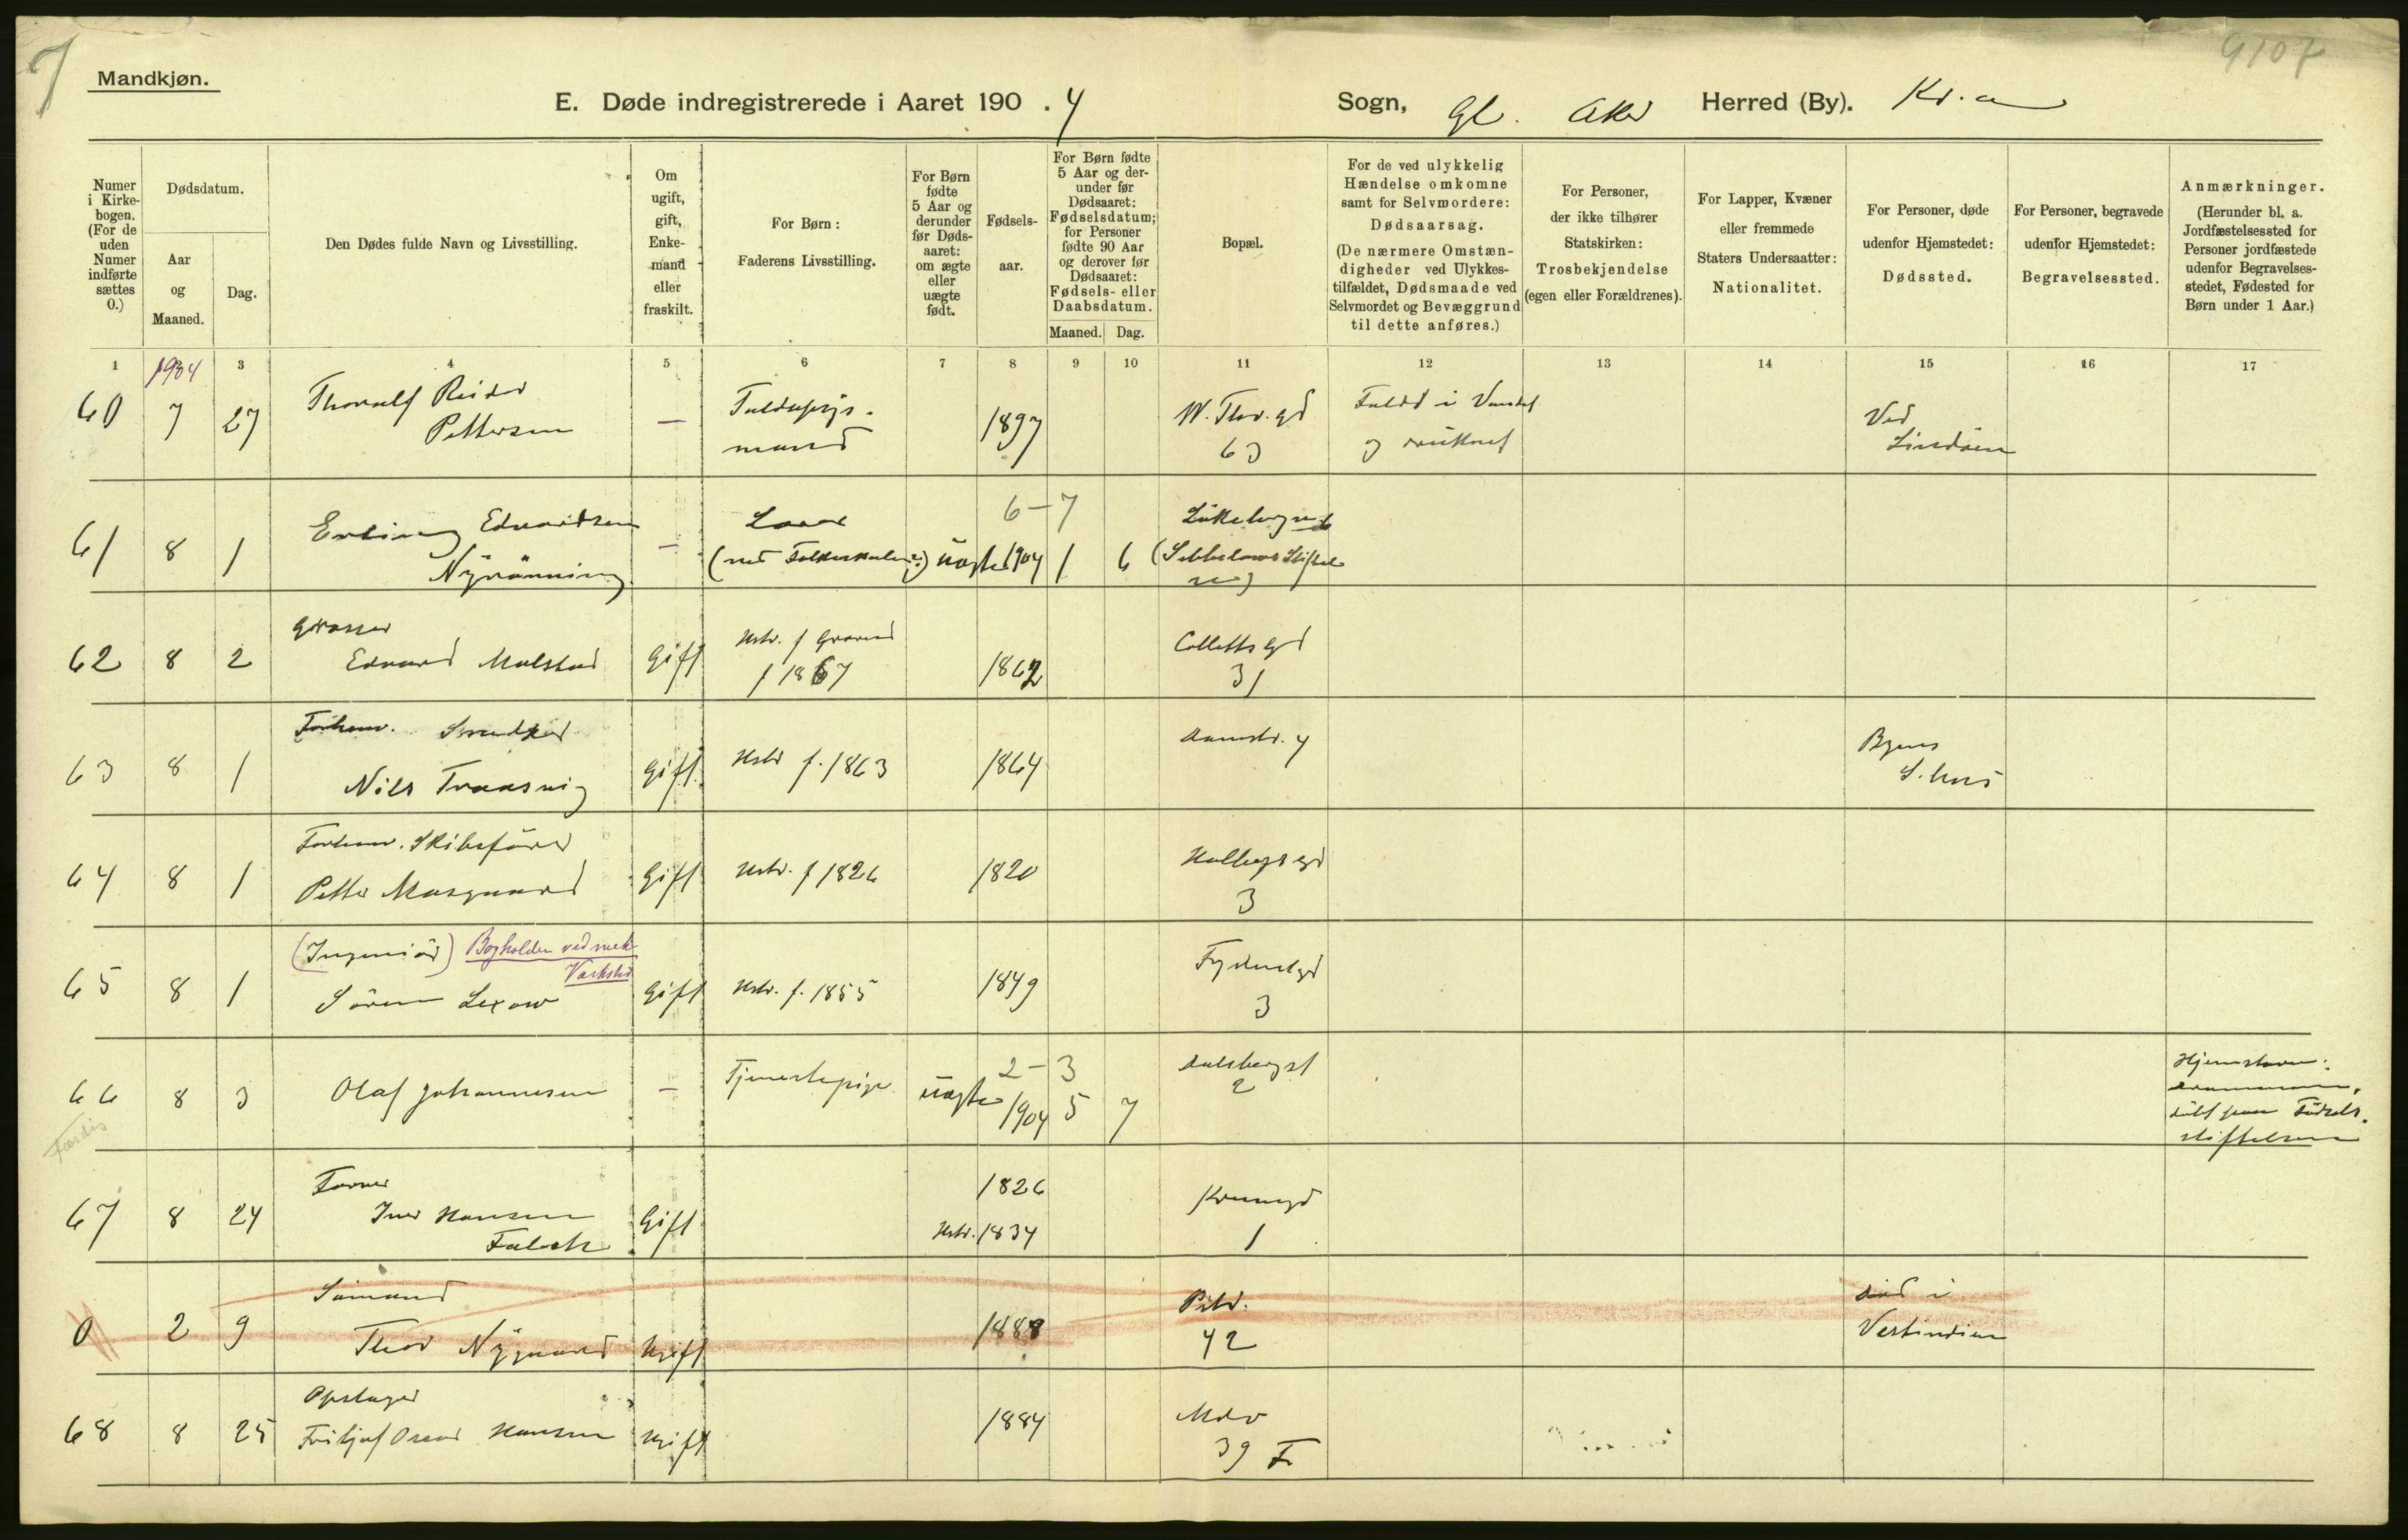 7
9107
Mandkjøn.
E. Døde indregistrerede i Aaret 190 . 4 Sogn, Gl. Aker Herred (By). Kr.a
Numer i Kirkebogen. (For de uden Numer indførte sættes 0.)
Dødsdatum.
Aar og Maaned.
Dag.
Den Dødes fulde Navn og Livsstilling.
Om ugift, gift, Enkemand eller fraskilt.
For Børn: Faderens Livsstilling.
For Børn fødte 5 Aar og derunder før Dødsaaret: om ægte eller uægte født.
Fødselsaar.
For Børn fødte 5 Aar og derunder før Dødsaaret: Fødselsdatum; for Personer fødte 90 Aar og derover før Dødsaaret: Fødsels- eller Daabsdatum.
Maaned. Dag.
Bopæl.
For de ved ulykkelig Hændelse omkomne samt for Selvmordere: Dødsaarsag. (De nærmere Omstændigheder ved Ulykkestilfældet, Dødsmaade ved Selvmordet og Bevæggrund til dette anføres.)
For Personer, der ikke tilhører Statskirken: Trosbekjendelse (egen eller Forældrenes).
For Lapper, Kvæner eller fremmede Staters Undersaatter: Nationalitet.
For Personer, døde udenfor Hjemstedet: Dødssted.
For Personer, begravede udenfor Hjemstedet: Begravelsessted.
Anmærkninger. (Herunder bl. a. Jordfæstelsessted for Personer jordfæstede udenfor Begravelsesstedet, Fødested for Børn under 1 Aar.)
1 1904 3 4 5 6 7 8 9 10 11 12 13 14 15 16 17
60 7 27 Thoralf Reidar Pettersen — mand 1897 W. Thr. gd 63 Faldt i Vandet og druknet Ved Lindøen
61 8 1 Erling Edvardsen — 6-7 uægte 1904 1 6 (Sebbelows Stiftelse)
62 8 2 Grosser Edvard Molstad Gift Hstr. f 1867 1862 Colletts gd 31
63 8 1 Forhenv. Nils Gift Hstr f. 1863 1864 4 Byens S. hus
64 8 1 Forhenv. Skibsfører Petter Gift Hstr. f 1826 1820 Holbergs gd 3
65 8 1 (Ingeniør) Bogholder ved mek Værksted Søren Lexow Gift Hstr. f. 1855 1849 3
66 8 3 Olaf Johannesen — Tjenestepige 2-3 uægte 1904 5 7 Dalsbergst 2 Hjemstavn: Drammen, født paa Fødselsstiftelsen
Færdig
67 8 24 Iver Hansen Falch Gift 1826 Hstr. 1834 1
0 2 9 Sømand Thor Nygaard Ugift 1888 Pilestr. 42 død i Vestindien
68 8 25 Opslager Fritjof Oscar Hansen Ugift 1884 39 F